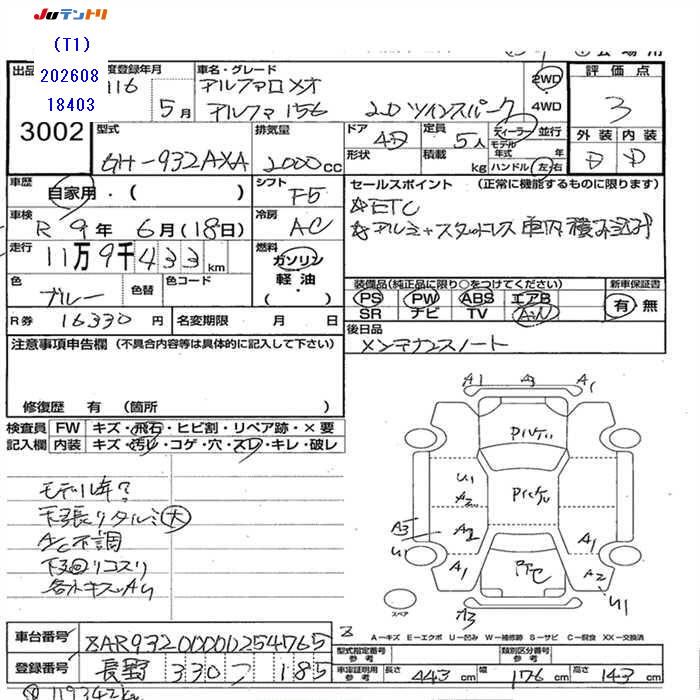 Juテントリ
(T1)
202608
18403
出品
3002
度登録年月
H16
5月
車名・グレード
アルファロメオ
アルファ156 2.0 ツインスパーク
2WD
4WD
評価点
3
外装 内装
D D
型式
GH-932AXA
排気量
2000cc
ドア 4D
形状
定員 5人
積載 kg
ディーラー 並行
モデル年式 年
ハンドル 左・右
車歴
自家用・( )
シフト
F5
車検
R 9年 6月(18日)
冷房
AC
走行
11万9千433km
燃料
ガソリン
軽油
・( )
色
ブルー
色替
色コード
R券 16330円
名変期限 月 日
セールスポイント (正常に機能するものに限ります)
☆ETC
☆アルミ+スタッドレス 車内積み込み
装備品(純正品に限り○をつけてください)
PS PW ABS エアB
SR ナビ TV
新車保証書
有 無
後日品
メンテナンスノート
注意事項申告欄(不具合内容等は具体的に記入して下さい)
修復歴 有 (箇所 )
検査員 FW キズ・飛石・ヒビ割・リペア跡・×要
記入欄 内装 キズ・汚レ・コゲ・穴・スレ・キレ・破レ
モデル年?
天張りタルミ大
A/C不調
下回リコスリ
各小キズ
A1 A3 A1
U1
A2
A3
U1
A2
A1
A1
A2
U1
A3
スペア
A―キズ E―エクボ U―凹み W―補修跡 S―サビ C―腐食 XX―交換済
車台番号
ZAR93200001254765
登録番号
長野 330 フ 185
型式指定番号 参考
類別区分番号 参考
車庫証明用 参考
長さ 443cm 幅 176cm 高さ 143cm